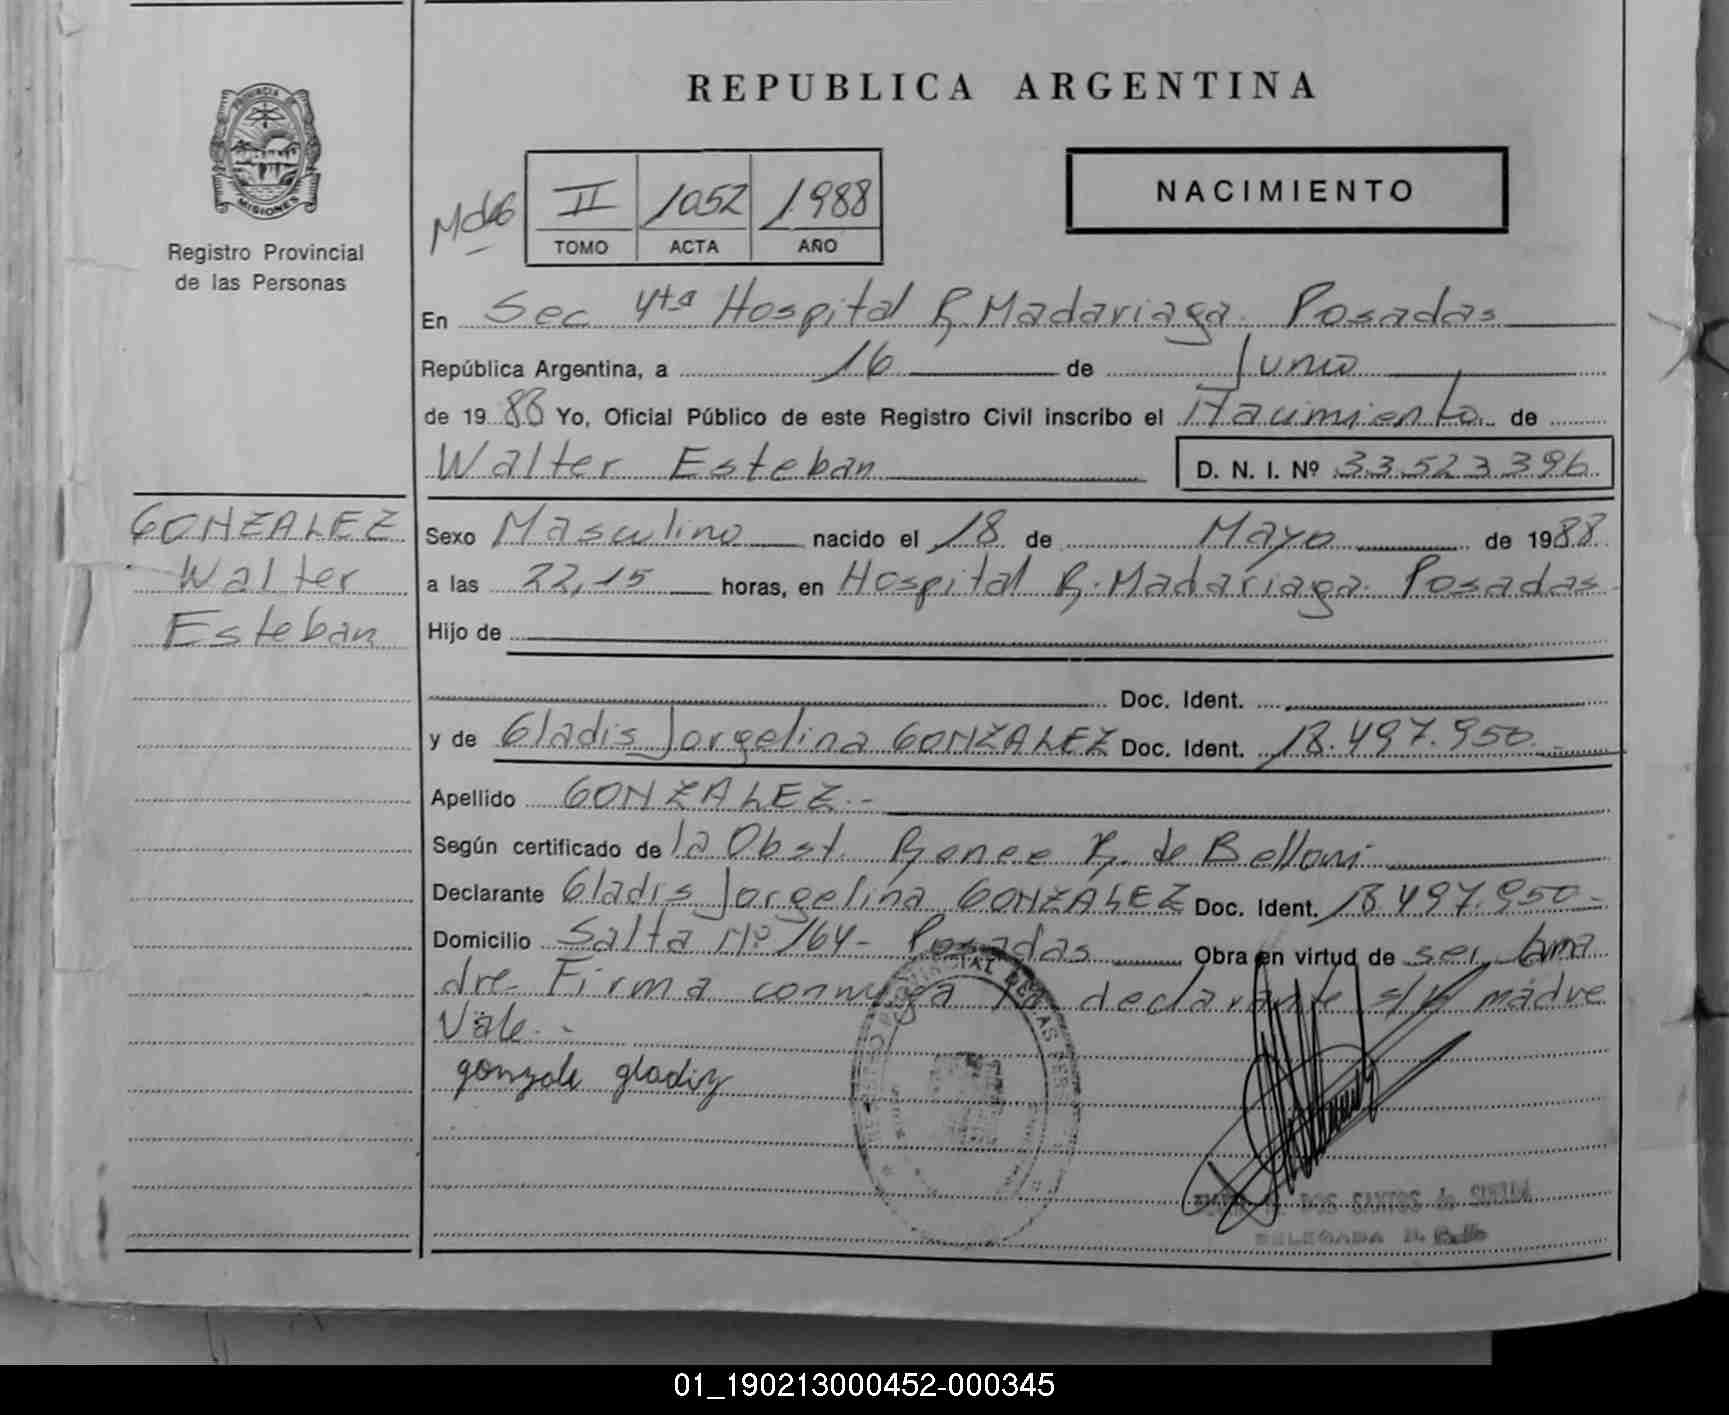 REPUBLICA ARGENTINA
PROVINCIA DE
MISIONES
Registro Provincial
de las Personas
II 1052 1988
TOMO ACTA AÑO
NACIMIENTO
En Sec 4ta Hospital R. Madariaga. Posadas
República Argentina, a 16 de Junio
de 1988 Yo, Oficial Público de este Registro Civil inscribo el Nacimiento de
Walter Esteban D. N. I. Nº 33.523.396
GONZALEZ
Walter
Esteban
Sexo Masculino nacido el 18 de Mayo de 1988
a las 22,15 horas, en Hospital R. Madariaga. Posadas
Hijo de
Doc. Ident.
y de Gladis Jorgelina GONZALEZ Doc. Ident. 18.497.950
Apellido GONZALEZ.-
Según certificado de la Obst. Renee R. de Belloni
Declarante Gladis Jorgelina GONZALEZ Doc. Ident. 18.497.950-
Domicilio Salta Nº 164- Posadas Obra en virtud de ser la ma
dre Firma conmigo la declarante s/r madre
Vale.-
gonzale gladiz
DOS SANTOS de
DELEGADA
01_190213000452-000345